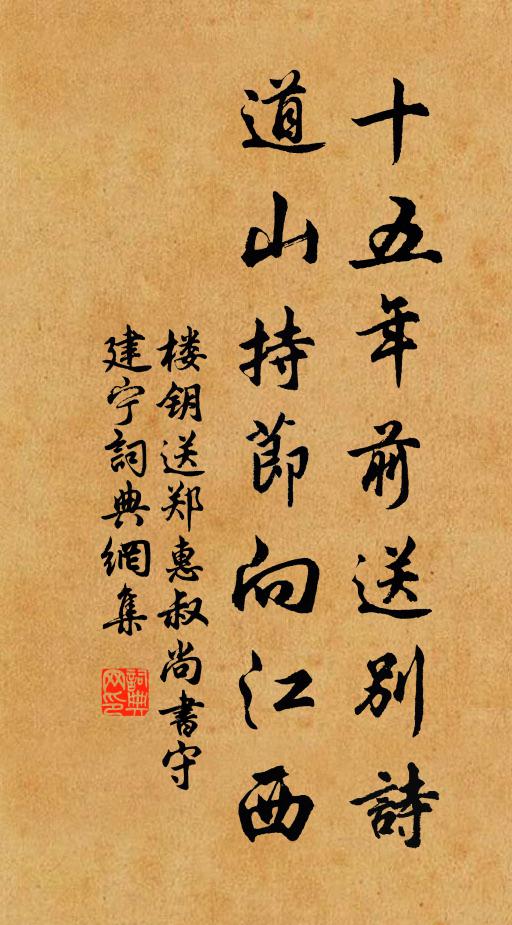 十五年前送別詩
道山持節向江西
楼钥送郑惠叔尚書守
建宁詞典網集
詞典网印